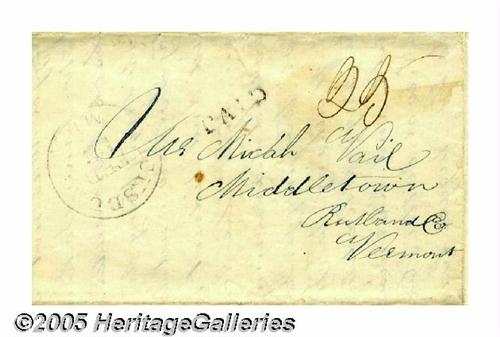 25
PAID
Mr Micah Vail
Middletown
Rutland Co
Vermont
©2005 HeritageGalleries